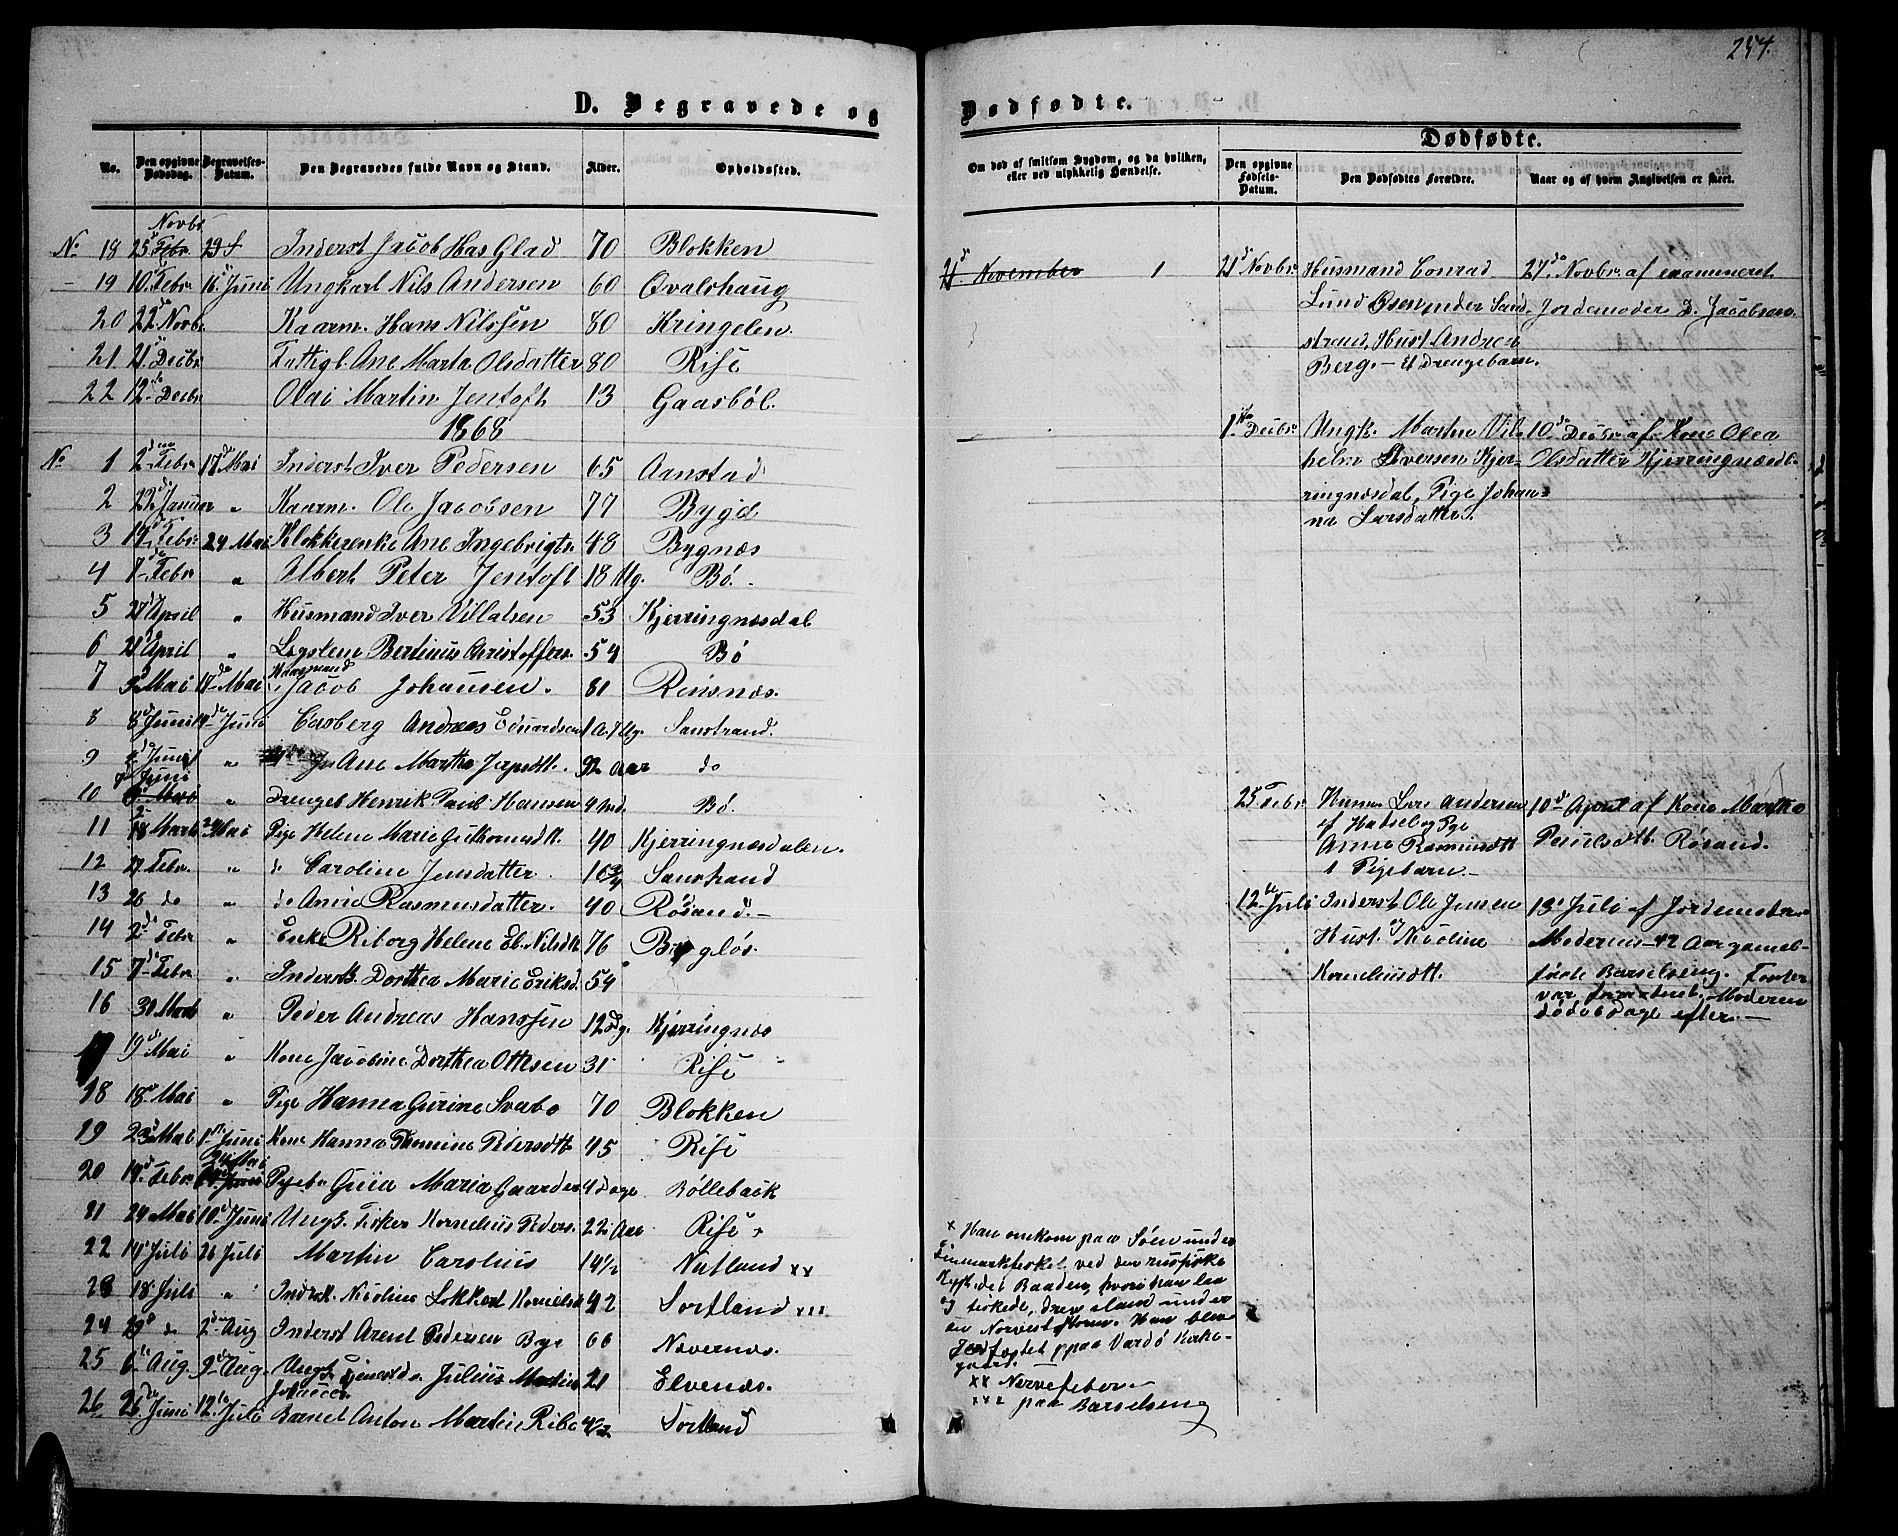 254.
D. Begravede og
Dødfødte.
No.
Den opgivne Dødsdag.
Begravelses-Datum.
Den Begravedes fulde Navn og Stand.
Alder.
Opholdssted.
Om død af smitsom Sygdom, og da hvilken, eller ved ulykkelig Hændelse.
Dødfødte.
Den opgivne Fødsels-Datum.
Den Dødfødtes Forældre.
Naar og af hvem Angivelsen er skeet.
Novbr
No 18 25 Febr 29 Inderst Jacob Has Glad 70 Blokken
19 10 Febr 16 Juni Ungkarl Nils Andersen 60 Qvalshaug
20 22 Novbr Kaarm. Hans Nilssen 80 Kringelen
21 21 Decbr Fattigl. Ane Marta Olsdatter 80 Rise
22 12 Decbr Olai Martin Jentoft 13 Gaasbøl.
1868
No 1 2 Febr 17 Mai Inderst Iver Pedersen 65 Aanstad
2 22 Januar " Kaarm. Ole Jacobsen 77 Bygd
3 19 Febr 24 Mai Klokkerenke Ane Ingebrigts. 48 Bygnæs
4 7 Febr " Albert Peter Jentoft 18 Ug. Bø.
5 27 April " Husmand Iver Villatsen 53 Kjerringnæsdal
6 21 April " Logslem Bertinus Christoffers. 54 Bø
7 3 Mai 17 Mai Kaarmand Jacob Johansen. 81 Reinsnæs.
8 8 Juni 14 Juni Casberg Andreas Eduardsen 1 A. 7 Ug. Sanstrand.
9 2 Juni " Ane Martha Jensdtt. 92 Aar do
Juni
10 Mai " Drengeb Henrik Paul Hansen 4 Md. Bø.
11 18 Marts 24 Mai Pige Helene Marie Guthormsdtt. 40 Kjerringnæsdalen.
12 27 Febr. " do Caroline Jensdatter 16 3/4 Sanstrand
13 26 do " do Anne Rasmusdatter. 40 Røsand.
14 2 Febr " Enke Riborg Helene El. Nilsdtt. 76 Bygløs.
15 7 Febr. " Inderstk. Dorthea Marie Eriksd. 54
16 30 Marts " Peder Andreas Hanssen 12 Dg. Kjerringnæs
17 19 Mai " Kone Jacobine Dorthea Ottesen 31 Rise
18 18 Mai " Pige Hanna Gurine Svabo 70 Blokken
19 23 Mai 1 Juni Kone Hanna Thomine Pedersdtt. 45 Rise
24 Mai
20 19 Febr Pigeb. Guia Maria Gaarder 4 Dage Bøllebakk
21 24 Mai 10 Juni Ungk. Fisker Kornelius Peders. 22 Aar Rise x
22 14 Juli 26 Juli Martin Carolius 14 1/2 Natland xx
23 18 Juli " Inderstk. Nicoline Lokkert Kornelsd. 42 Sortland xxx
24 29 do 2 Aug Inderst Arent Pedersen Bye 66 Nævernes.
25 6 Aug. 9 Aug. Ungk. Tjenestedr. Julius Martin 21 Elvenæs.
Johansen
26 26 Juni 12 Juli Barnet Anton Martin Ribe 4/12 Sortland
21 November 1 21 Novbr Husmand Conrad 27 Novbr. af examineret
Lund Osen under Sand- Jordemoder D. Jacobsen.
strand, Hust. Andrea
Berg. – Et Drengebarn.
1 Decbr Ungk. Martin Vil- 10 Decbr af Kone Olea
helm Siversen Kjer- Olsdatter Kjerringnæsdl.
ringnæsdal, Pige Johan-
na Larsdatter.
25 Febr Husm. Lars Andersen 10 April af Kone Martha
af Hadsel og Pige Paulsdtt. Røsand.
Anne Rasmusdtt
1 Pigebarn.
12 Juli Inderst Ole Jensen 13 Juli af Jordemoder
Hust. Nicoline Moderen 42 Aar gammel
Kornelisdtt. første Barselseng. Foster
var Moderen
døde Dage efter.
x Han omkom paa Søen under
Finmarkfisket ved den russiske
Kyst, idet Baaden, hvori han laa
og fiskede, drev iland under
en Norveststorm. Han blev
Jordfæstet paa Vardø Kirke-
gaard.
xx Nervefeber
xxx paa Barselseng